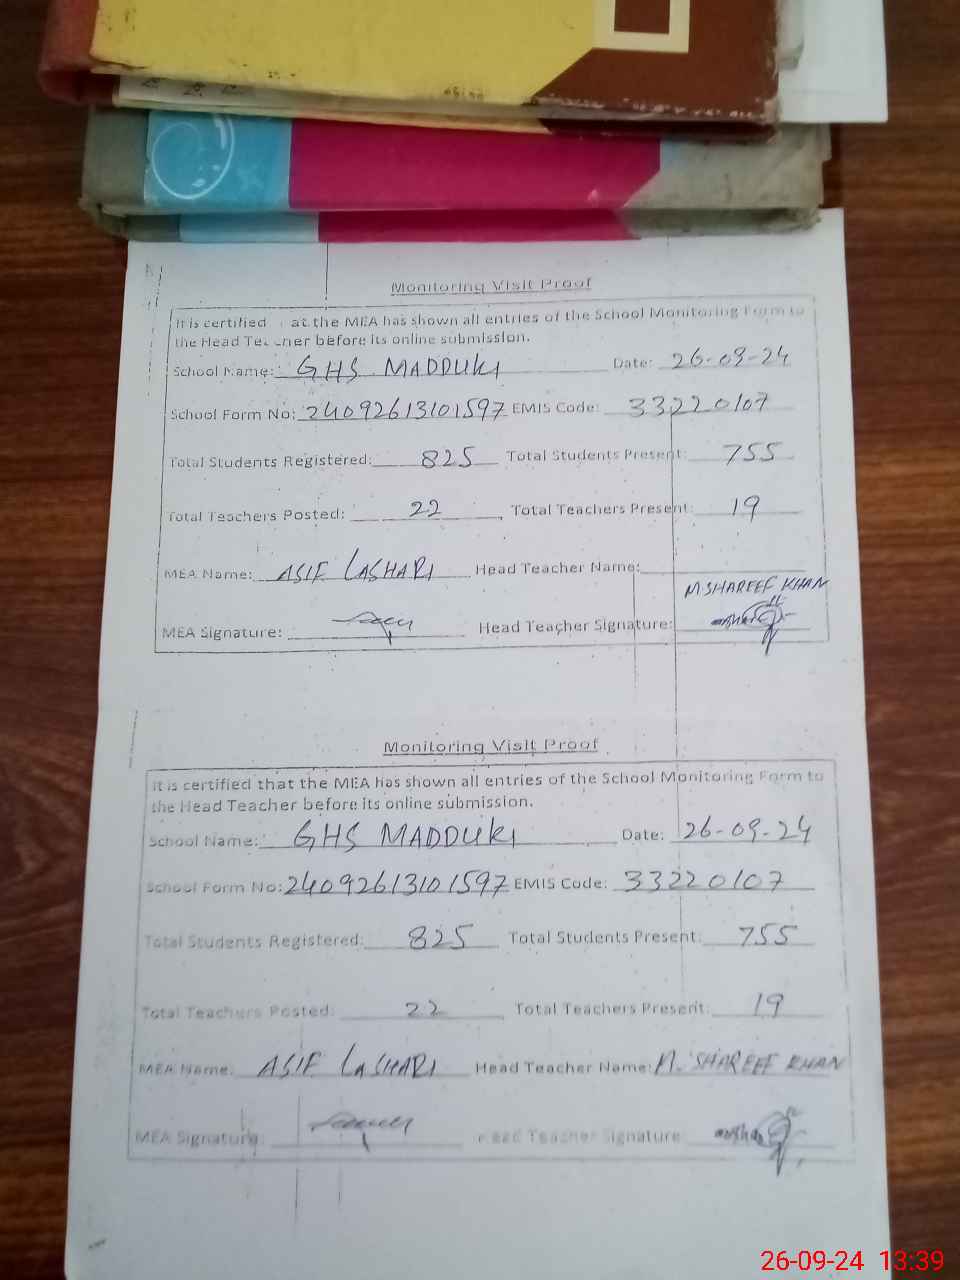 Monitoring Visit Proof
It is certified at the MEA has shown all entries of the School Monitoring Form to
the Head Teacher before its online submission.
School Name: GHS MADDUKI Date: 26-09-24
School Form No: 24092613101597 EMIS Code: 33220107
Total Students Registered: 825 Total Students Present: 755
Total Teachers Posted: 22 Total Teachers Present: 19
MEA Name: ASIF LASHARI Head Teacher Name:
M. SHAREEF KHAN
MEA Signature: Head Teacher Signature:
Monitoring Visit Proof
It is certified that the MEA has shown all entries of the School Monitoring Form to
the Head Teacher before its online submission.
School Name: GHS MADDUKI Date: 26-09-24
School Form No: 24092613101597 EMIS Code: 33220107
Total Students Registered: 825 Total Students Present: 755
Total Teachers Posted: 22 Total Teachers Present: 19
MEA Name: ASIF LASHARI Head Teacher Name: M. SHAREEF KHAN
MEA Signature: Head Teacher Signature:
26-09-24 13:39